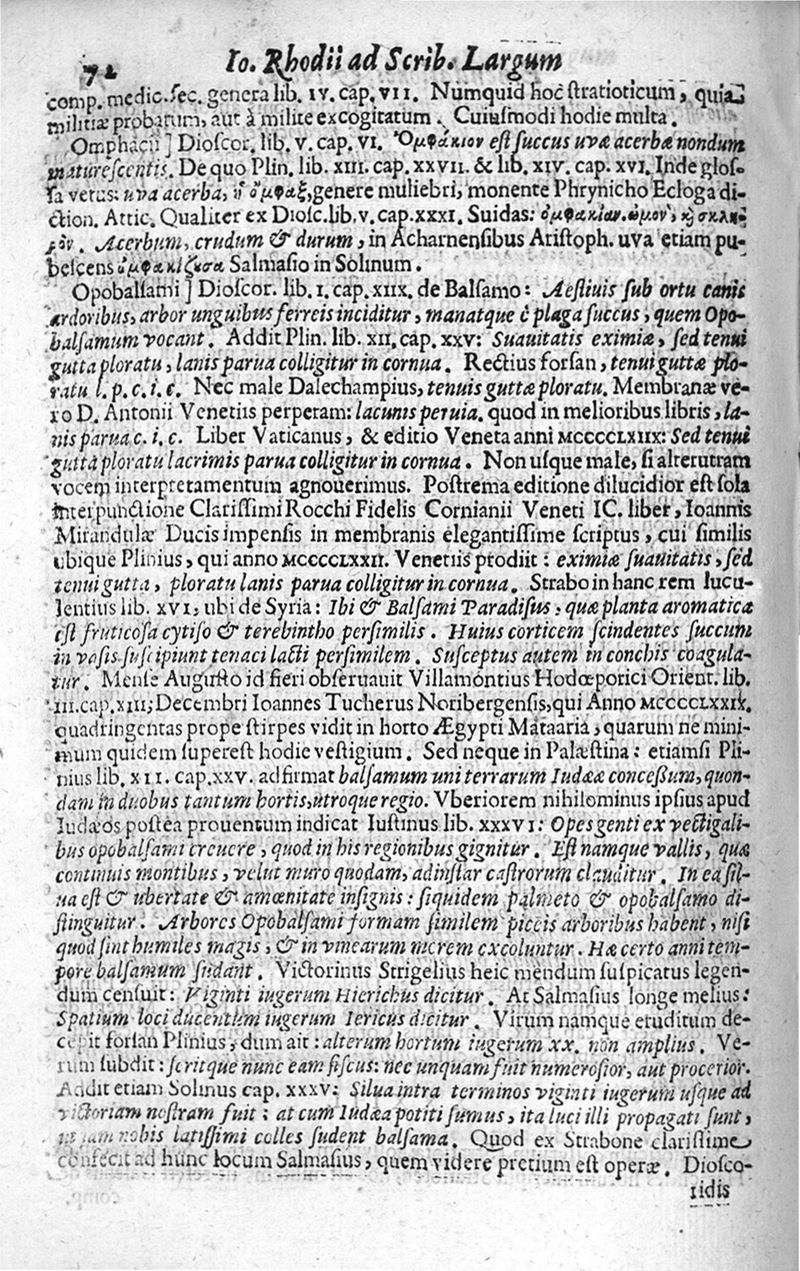 72 Io. Rhodii ad Scrib. Largum
comp. medic. sec. genera lib. IV. cap. VII. Numquid hoc stratioticum, quia
militiæ probatum, aut à milite excogitatum. Cuiusmodi hodie multa.
Omphacii] Dioscor. lib. V. cap. VI. Ὀμφάκιον est succus uvæ acerbæ nondum
maturescentis. De quo Plin. lib. XIII. cap. XXVII. & lib. XIV. cap. XVI. Inde glos-
sa vetus: uva acerba, ἡ ὄμφαξ, genere muliebri, monente Phrynicho Ecloga di-
ction. Attic. Qualiter ex Diosc. lib. V. cap. XXXI. Suidas: ὀμφακίαν. ὠμὸν, καὶ σκλη-
ρόν. Acerbum, crudum & durum, in Acharnensibus Aristoph. uva etiam pu-
bescens ὀμφακίζουσα Salmasio in Solinum.
Opobalsami] Dioscor. lib. I. cap. XIIX. de Balsamo: Aestiuis sub ortu canis
ardoribus, arbor unguibus ferreis inciditur, manatque è plaga succus, quem Opo-
balsamum vocant. Addit Plin. lib. XII. cap. XXV: Suauitatis eximiæ, sed tenui
gutta ploratu, lanis parua colligitur in cornua. Rectius forsan, tenui guttæ plo-
ratu l. p. c. i. c. Nec male Dalechampius, tenuis guttæ ploratu. Membranæ ve-
ro D. Antonii Venetiis perperam: lacunis peruia. quod in melioribus libris, la-
nis parua c. i. c. Liber Vaticanus, & editio Veneta anni MCCCCLXIIX: Sed tenui
gutta ploratu lacrimis parua colligitur in cornua. Non usque male, si alterutram
vocem interpretamentum agnouerimus. Postrema editione dilucidior est sola
interpunctione Clarissimi Rocchi Fidelis Cornianii Veneti IC. liber, Ioannis
Mirandulæ Ducis impensis in membranis elegantissime scriptus, cui similis
ubique Plinius, qui anno MCCCCLXXII. Venetiis prodiit: eximiæ suauitatis, sed
tenui gutta, ploratu lanis parua colligitur in cornua. Strabo in hanc rem lucu-
lentius lib. XVI; ubi de Syria: Ibi & Balsami Paradisus, quæ planta aromatica
est fruticosa cytiso & terebintho persimilis. Huius corticem scindentes succum
in vasis suscipiunt tenaci lacti persimilem. Susceptus autem in conchis coagula-
tur. Mense Augusto id fieri obseruauit Villamontius Hodœporici Orient. lib.
III. cap. XIII; Decembri Ioannes Tucherus Noribergensis, qui Anno MCCCCLXXIX.
quadringentas prope stirpes vidit in horto Ægypti Mataaria, quarum ne mini-
mum quidem superest hodie vestigium. Sed neque in Palæstina: etiamsi Pli-
nius lib. XII. cap. XXV. adfirmat balsamum uni terrarum Iudææ concessum, quon-
dam in duobus tantum hortis, utroque regio. Vberiorem nihilominus ipsius apud
Iudæos postea prouentum indicat Iustinus lib. XXXVI: Opes genti ex vectigali-
bus opobalsami creuere, quod in his regionibus gignitur. Est namque vallis, quæ
continuis montibus, velut muro quodam, ad instar castrorum clauditur. In ea sil-
ua est & ubertate & amœnitate insignis: siquidem palmeto & opobalsamo di-
stinguitur. Arbores Opobalsami formam similem piceis arboribus habent, nisi
quod sint humiles magis, & in vinearum morem excoluntur. Hæ certo anni tem-
pore balsamum sudant. Victorinus Strigelius heic mendum suspicatus legen-
dum censuit: Viginti iugerum Hierichus dicitur. At Salmasius longe melius:
Spatium loci ducentum iugerum Iericus dicitur. Virum namque eruditum de-
cepit forsan Plinius, dum ait: alterum hortum iugerum XX. non amplius. Ve-
rum subdit: seritque nunc eam fiscus: nec unquam fuit numerosior, aut procerior.
Addit etiam Solinus cap. XXXV: Silua intra terminos viginti iugerum usque ad
victoriam nostram fuit: at cum Iudæa potiti sumus, ita luci illi propagati sunt,
ut iam nobis latissimi colles sudent balsama. Quod ex Strabone clarissime
confecit ad hunc locum Salmasius, quem videre pretium est operæ. Diosco-
ridis